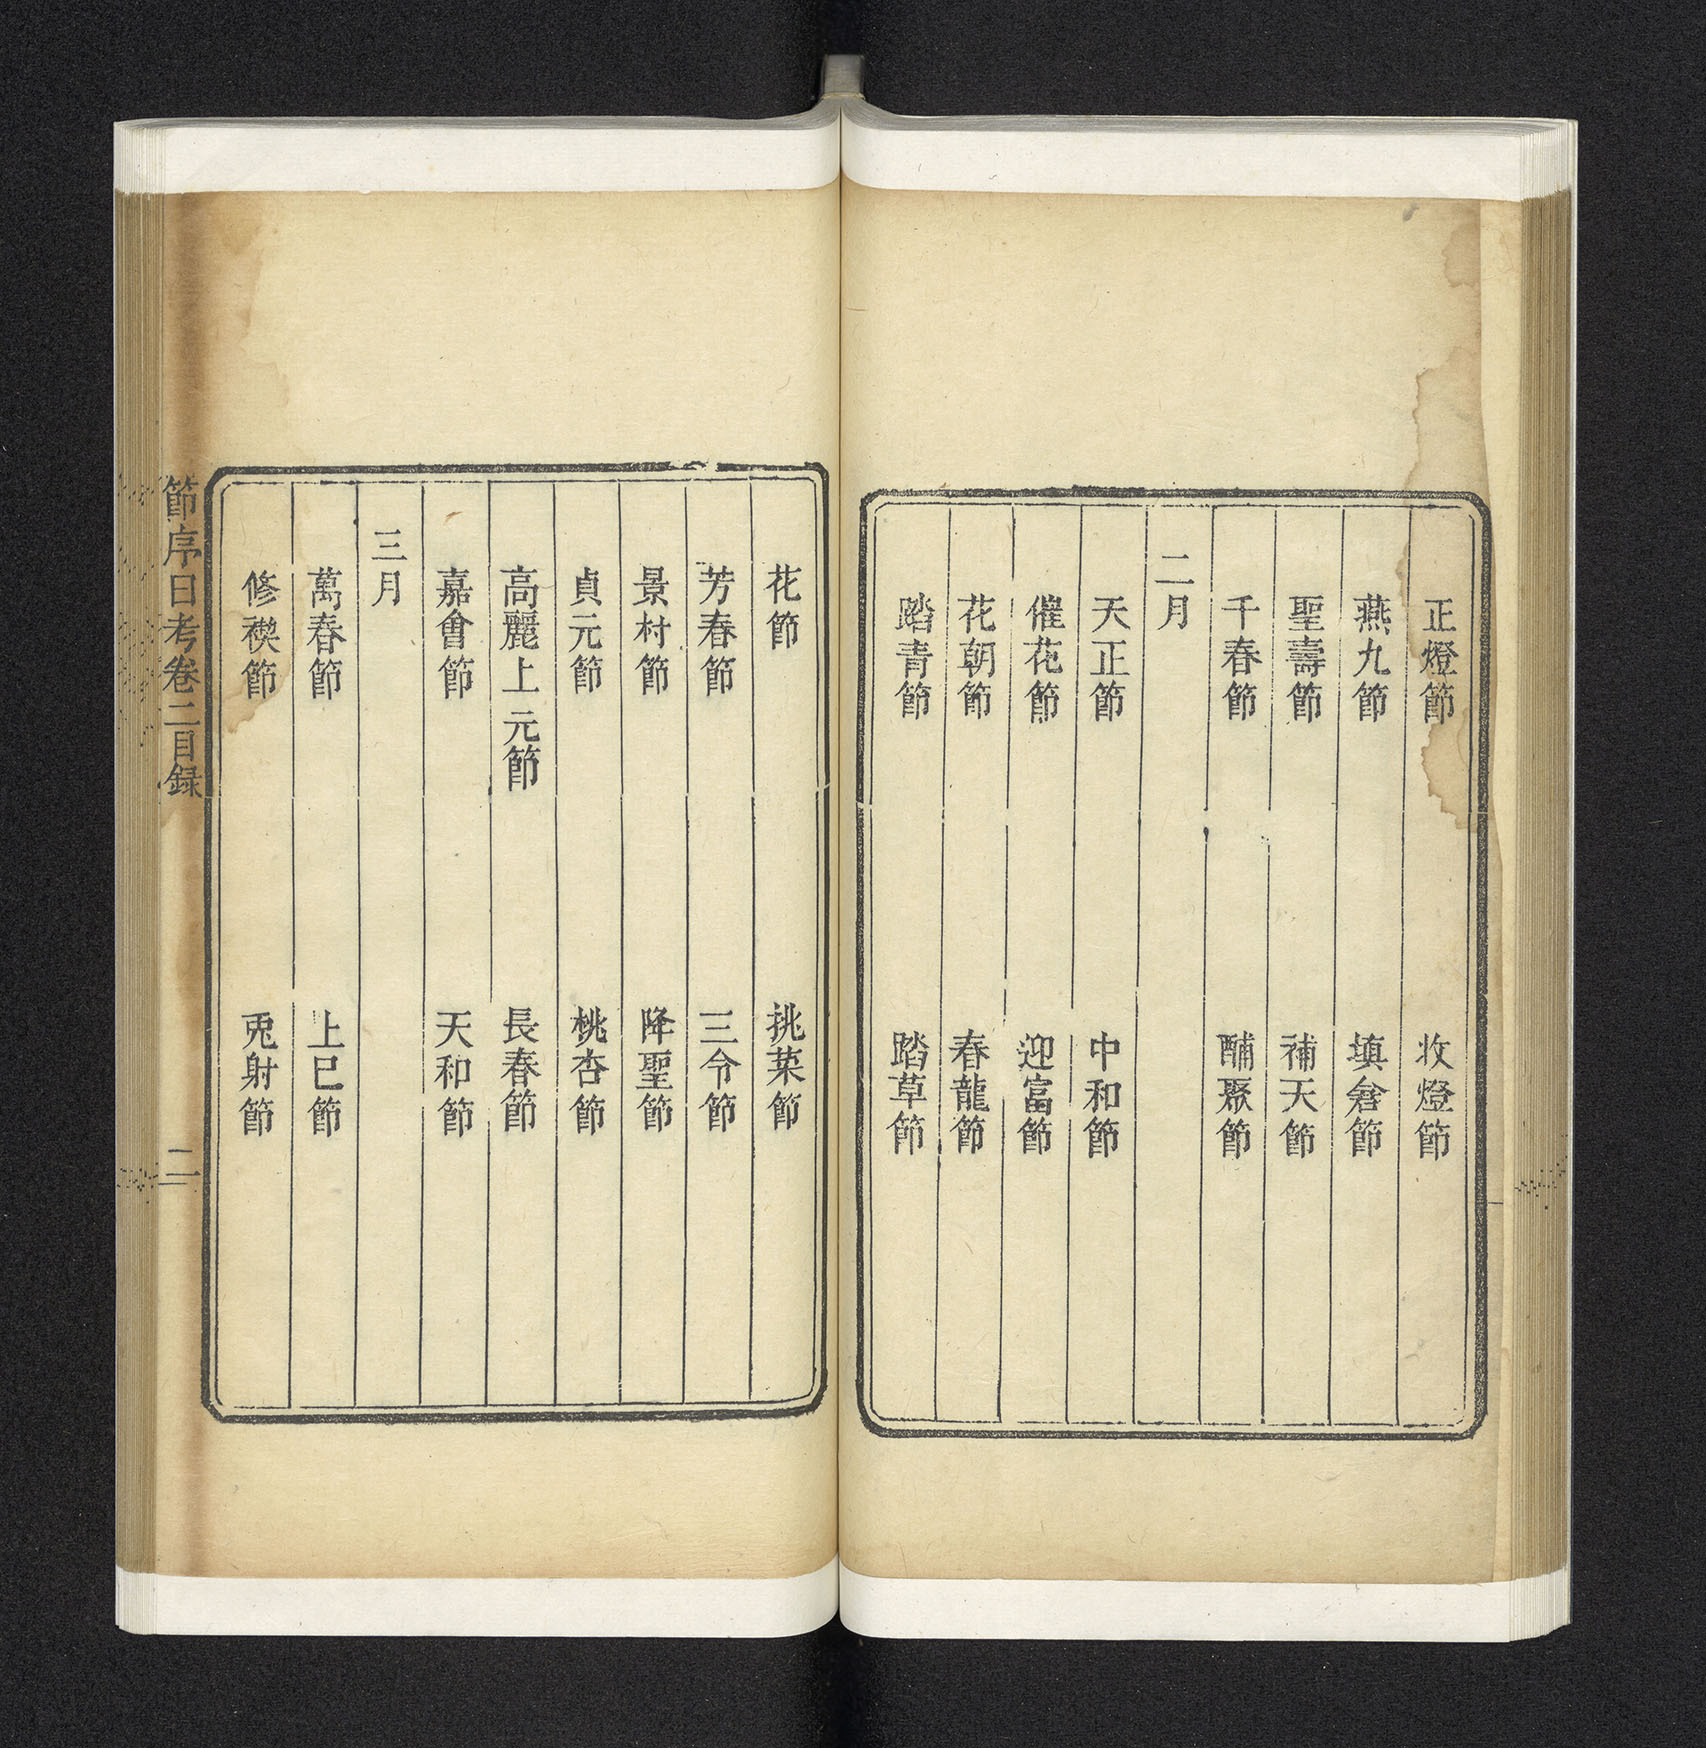 正燈節 收燈節
燕九節 填倉節
聖壽節 補天節
千春節 酺聚節
二月
天正節 中和節
催花節 迎富節
花朝節 春龍節
踏青節 踏草節
花節 挑菜節
芳春節 三令節
景村節 降聖節
貞元節 桃杏節
高麗上元節 長春節
嘉會節 天和節
三月
萬春節 上巳節
修禊節 兎射節
節序日考卷二目録 二